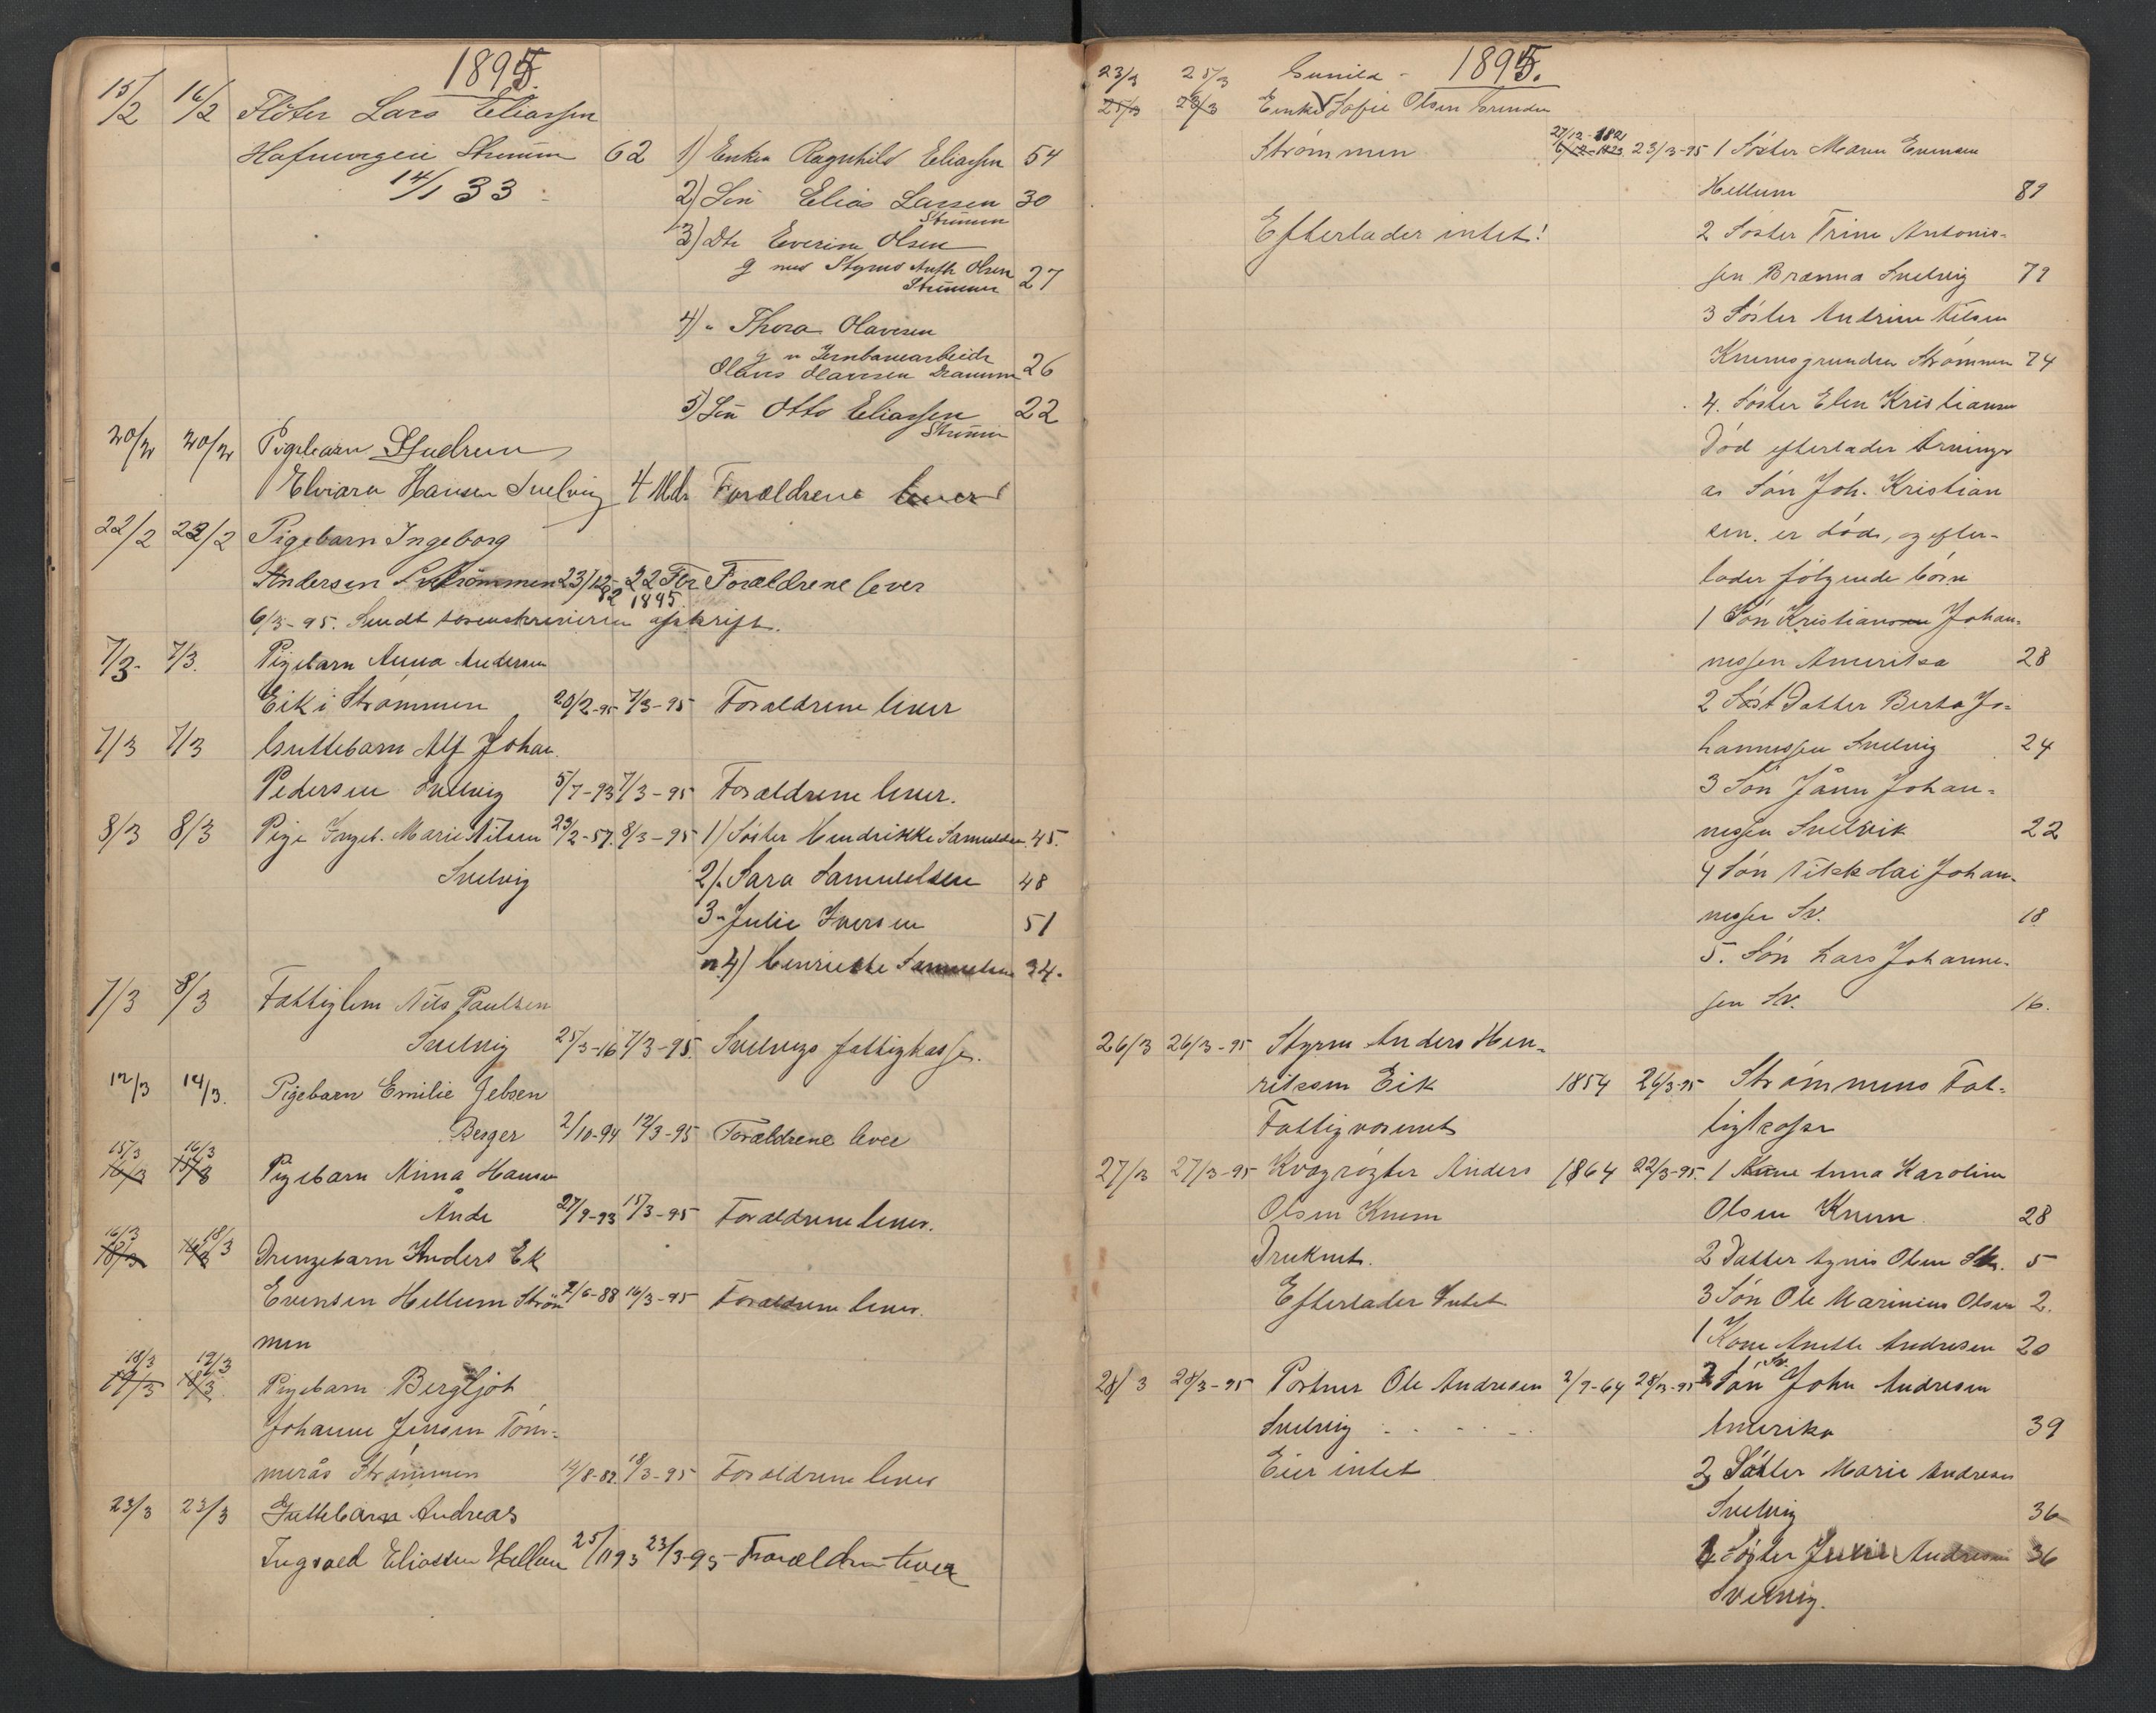 1895.
15/2 16/2 Flöter Lars Eliassen
Hafnevigen Strømm 62 1) Enken Ragnhild Eliassen 54
14/1 33 2) Søn Elias Larsen 30
Strømm
3) Dtr Everine Olsen
g med Styrmd Anth Olsen 27
Strømm
4) " Thora Olavesen
g m Jernbanearbeidr
Olaus Olavesen Drammen 26
5) Søn Otto Eliassen 22
Strømm
20/2 20/2 Pigebarn Gudrun
Elviara Hansen Svelvig 4 Mdr Forældrene lever
22/2 22/2 Pigebarn Ingeborg
Andersen Strømmen 23/12-82 22 Fbr 1895 Forældrene lever
6/3-95. Sendt sorenskriveren afskrift.
7/3- 7/3. Pigebarn Anna Andersen
Eik i Strømmen 20/2-95 7/3-95 Forældrene lever
7/3 7/3 Guttebarn Alf Johan
Pedersen Svelvig 5/7-93 7/3-95 Forældrene lever.
8/3 8/3 Pige Ingeb. Marie Nilsen 23/2-57. 8/3-95 1) Søster Hendrikke Samuelsen 45.
Svelvig 2/. Sara Samuelsen 48
3 " Julie Iversen 51
" 4) Henriette Samuelsen 34.
7/3 8/3 Fattiglem Nils Paulsen
Svelvig 25/3-16 7/3-95. Svelvigs fattigkasse.
12/3 14/3. Pigebarn Emilie Jebsen
Berger 2/10-94 12/3-95 Forældrene lever
15/3 16/3
Pigebarn Minna Hansen
Ånde 27/9-93 15/3-95 Forældrene lever.
16/3 18/3
18/3 Drengebarn Anders Ek
Evensen Hellum Strøm 2/6-88 16/3-95 Forældrene lever.
men
18/3 19/3
19/3 18/3 Pigebarn Bergljót
Johanne Jensen Töm-
merås Strømmen 14/8-82. 18/3-95 Forældrene lever
23/3 23/3 Guttebarn Andreas
Ingvald Eliassen Hellum 25/11 93 23/3-95 Forældrene lever
1895.
23/3 25/3 Gunild
25/3 26/3 Enke Sofie Olsen Grinden
27/12-182
Strømmen 6/12-1823 23/3-95 1 Søster Maren Evensen
Hellum 89
Efterlader intet! 2 Søster Trine Antonis-
sen Brænna Svelvig 79
3 Søster Andrine Nilsen
Knemsgrunden Strømmen 74
4. Søster Elen Kristiansen
Død efterlader Arvinger
a. Søn Joh. Kristian
sen. er død, og efter-
lader følgende børn
1 Søn Kristiansen Johan-
nessen Amerika 28
2 Søst Datter Berta Jo-
hannessen Svelvig 24
3 Søn Jånn Johan-
nessen Svelvik 22
4 Søn Nikkolai Johan-
nessen Sv. 18
5. Søn Lars Johanne-
sen Sv. 16.
26/3 26/3-95 Styrm Anders Hen-
riksen Eik 1854 26/3-95 Strømmens Fat-
Fattigvæsent tigkasse
27/3 27/3-95 Kvægrøgter Anders 1864 22/3-95. 1 Anna Karoline
Olsen Knem Olsen Knem 28
Druknet. 2 Datter Agnes Olsen Str. 5
Efterlader Intet 3 Søn Ole Marinius Olsen 2.
1 Kone Anette Andresen 20
28/3 28/3-95 Ole Andresen 2/9-64 28/3-95 2 Søn John Andresen
Svelvig Amerika 39
Eier intet 3 Søster Marie Andresen
Svelvig 36
4 Søster Andresen 36
Svelvig.